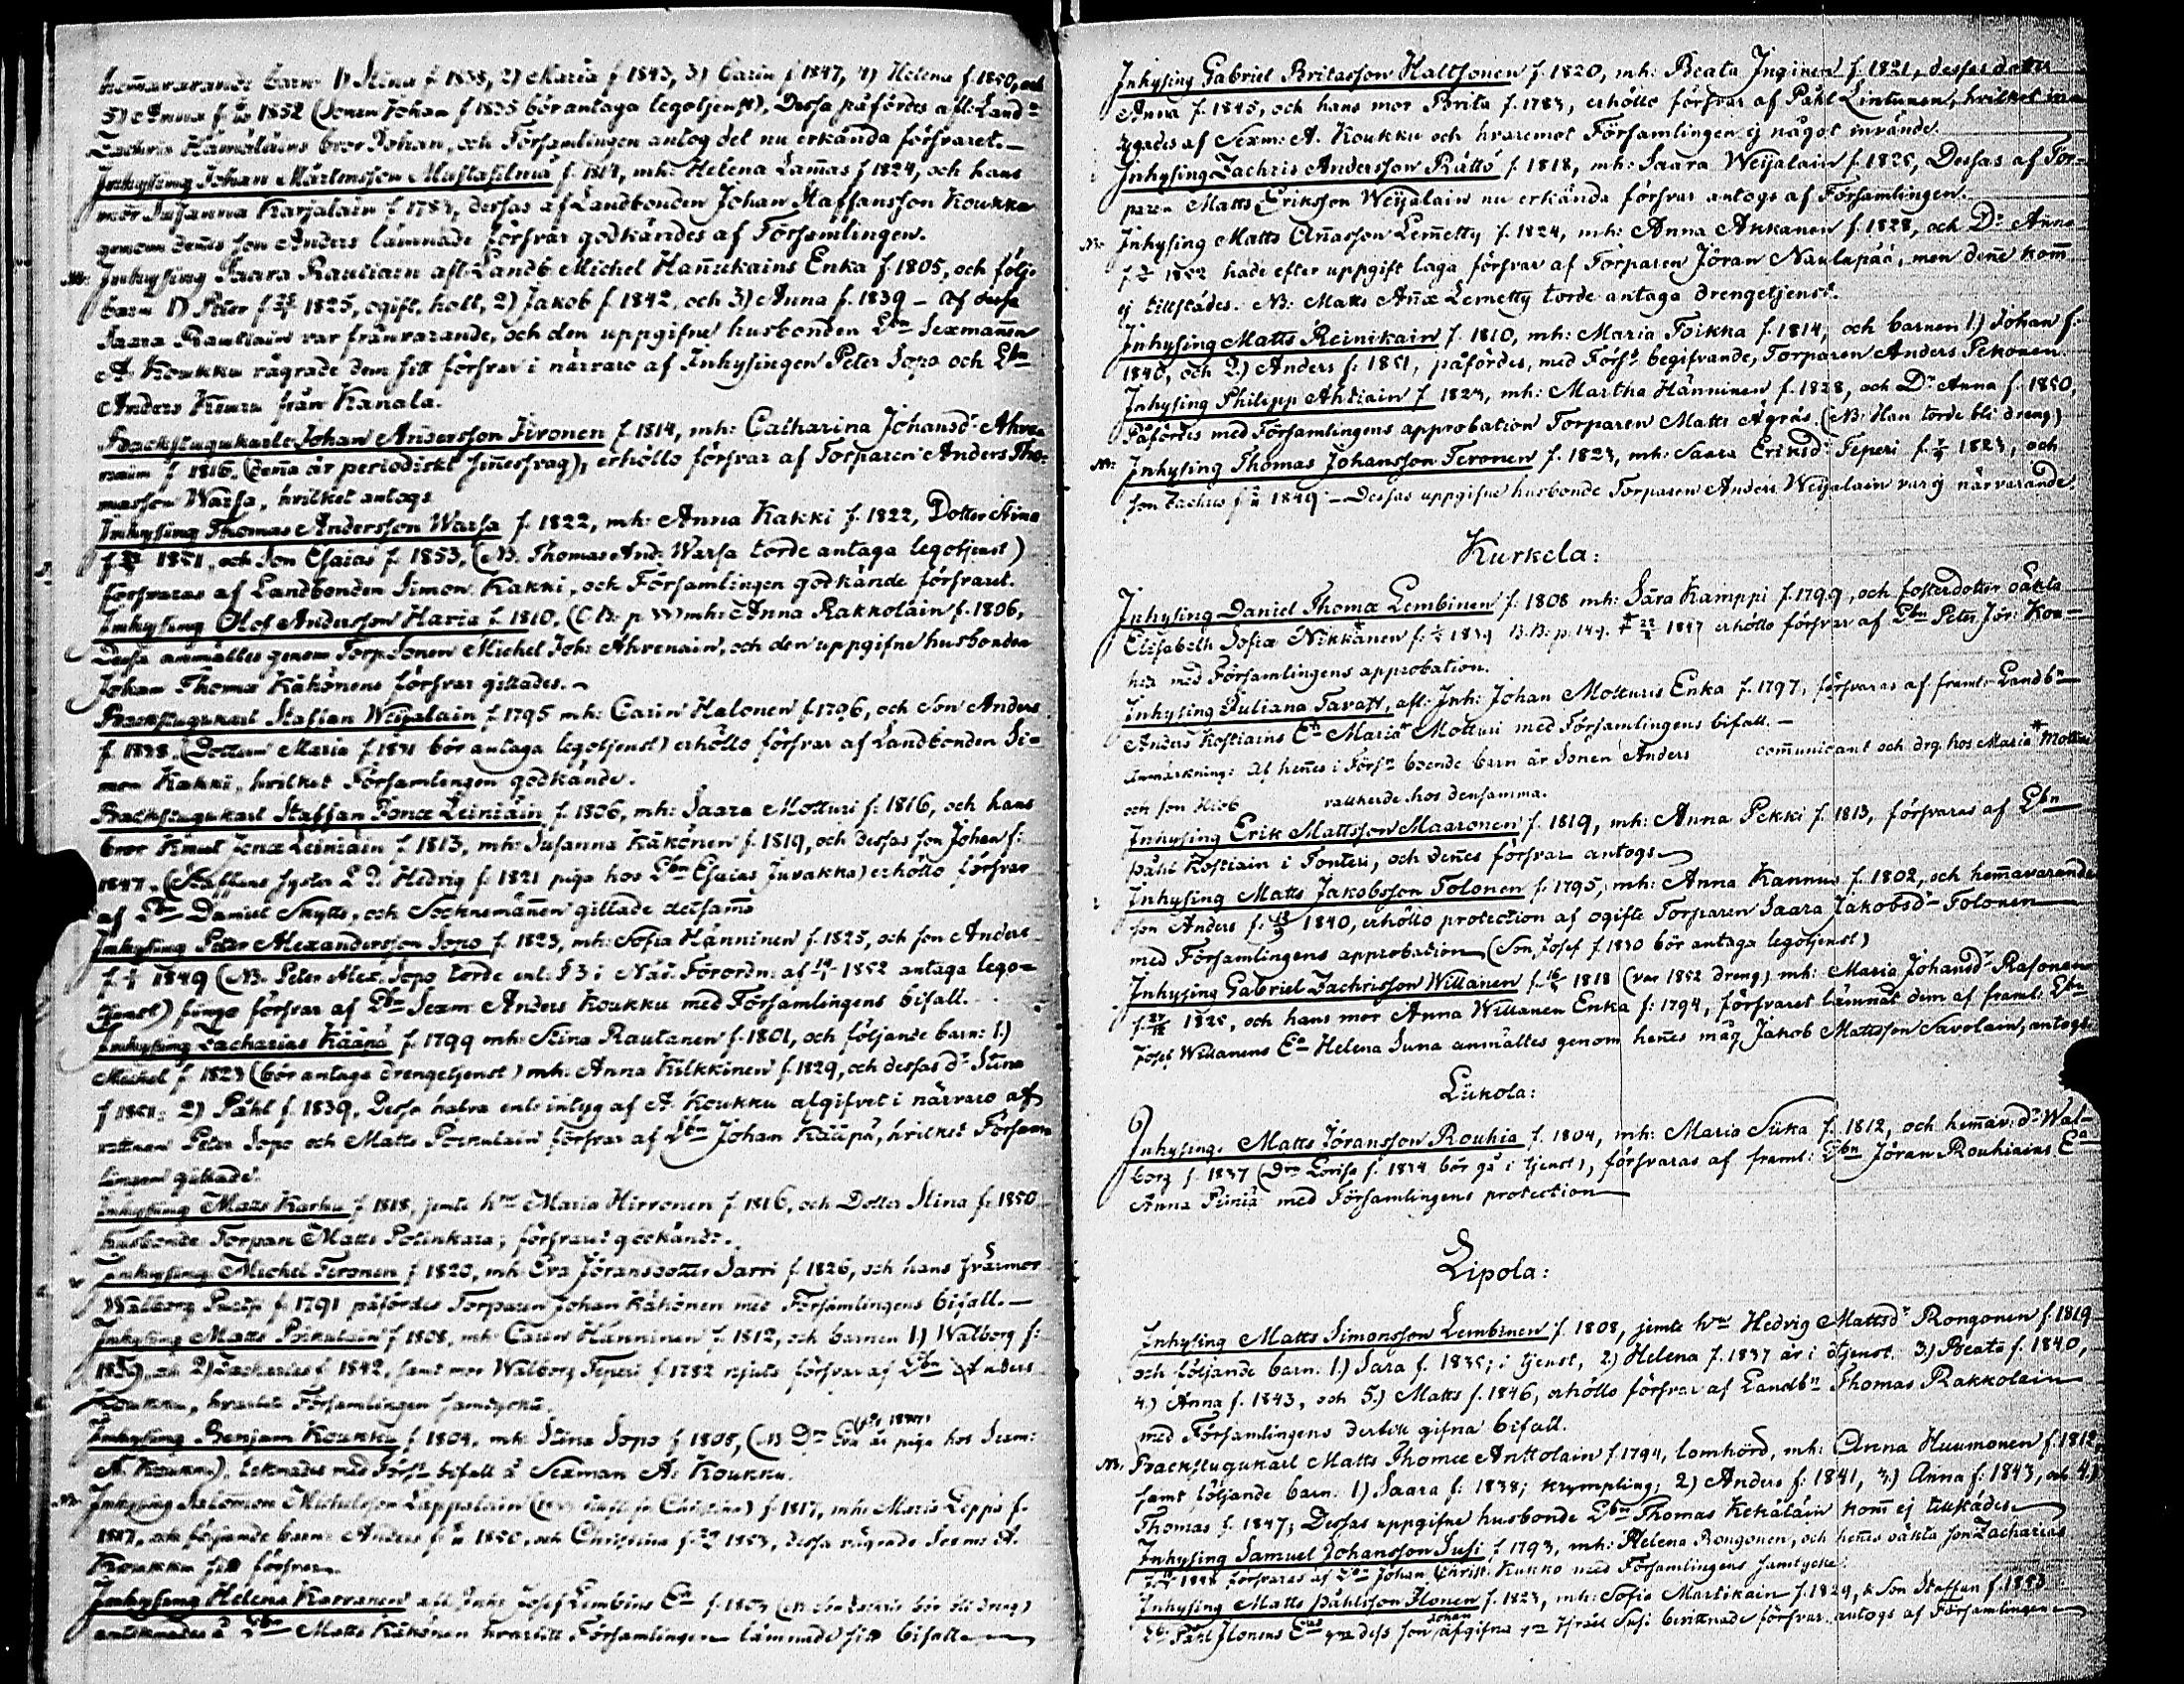 hem̄avarande barn 1) Stina f 1838, 2) Maria f 1843, 3) Carin f 1847, 4) Helena f. 1850, och
5) Anna f. 1852 (Sonen Johan f 1835 bör antaga legotjenst). Dessa påfördes afl: Land-
Zachris Hämäläins bror Johan, och Församlingen antog det nu erkända försvaret.—
Inhysing Johan Mårtensson Mustasilmä f. 1817, mh: Helena Lam̄as f 1824, och hans
mor Susanna Karjalain f 1783, dessas af Landbonden Johan Staffansson Koukku
genom den̄es son Anders lämnade försvar godkändes af Församlingen.
Inhysing Saara Rautiain afl: Landb Michel Han̄ukains Enka f. 1805, och följ.
barn 1) Peter f 1825, ogift, halt, 2) Jakob f 1842, och 3) Anna f. 1839 – Af dessa
Saara Rautiain var frånvarande, och den uppgifne husbonden Lbn Sexman̄en
A. Koukku vägrade dem sitt försvar i närvaro af Inhysingen Peter Sopo och Lbn
Anders Kemru från Kanala.
Backstugukarle Johan Andersson Jivonen f 1814, mh: Catharina Johansd: Ahve-
nain f 1816. (den̄a är periodiskt sin̄essvag), erhöllo försvar af Torparen Anders Tho-
masson Warsa, hvilket antogs
Inhysing Thomas Andersson Warsa f. 1822, mh: Anna Kakki f. 1822, Dotter Stina
f. 1851, och Son Esaias f. 1853, (NB. Thomas And: Warsa torde antaga legotjenst)
försvaras af Landbonden Simon Kakki, och Församlingen godkände försvaret.
Inhysing Olof Andersson Haria f. 1810, mh: Anna Rakkolain f. 1806,
Dessa anmältes genom Torpsonen Michel Joh: Ahvenain, och den uppgifne husbonden
Johan Thomæ Kähönens försvar gillades.–
Backstugukarl Staffan Weijalain f. 1795 mh: Carin Halonen f. 1796, och Son Anders
f. 1838. (Dottern Maria f. 1831 bör antaga legotjenst) erhöllo försvar af Landbonden Si-
mon Kakki, hvilket Församlingen godkände.
Backstugukarl Staffan Jonæ Leiniäin f. 1806, mh: Saara Motturi f. 1816, och hans
bror Knut Jonæ Leiniäin f. 1813, mh: Susanna Käkönen f. 1819, och dessas son Johan f.
1847. (Staffans syster Hedvig f. 1821 piga hos Lbn Esaias Juvakka) erhöllo försvar
af Lbn Daniel Skyttä, och Socknemän̄en gillade detsam̄a
Inhysing Peter Alexandersson Sopo f. 1823, mh: Sofia Hänninen f. 1825, och son Anders
f. 1849 (NB. Peter Alex. Sopo torde enl: §3 i Nåd. Förordn: af 1852 antaga lego-
tjenst) fingo försvar af Lbn Sexm: Anders Koukku med Församlingens bifall.
Inhysing Zacharias Kääpä f. 1799 mh: Stina Rautanen f. 1801, och följande barn: 1.)
Michel f 1823 (bör antaga drengetjenst) mh: Anna Kilkkinen f. 1829, och dessas d: Stina
f 1851; 2) Påhl f. 1839. Dessa halva enl: intyg af A. Koukku afgifvet i närvaro af
Peter Sopo och Matts Poikalain försvar af Lbn Johan Kääpä, hvilket Försam-
lingen gillade.
Inhysing Matts Karhu f. 1818, jemte hn Maria Hirvonen f. 1816, och Dotter Stina f. 1850.
husbonde Torpan Matts Polinkara; försvaret godkändt.
Inhysing Michel Teronen f. 1820, mh: Eva Jöransdotter Sarri f. 1826, och hans svärmor
Walborg f. 1791 påfördes Torparen Johan Kähönen med Församlingens bifall.—
Inhysing Matts Poikalain f. 1808, mh: Carin Hänninen f. 1812, och barnen 1) Walborg f.
1839, och 2) Zacharias f. 1842, samt mor Walborg Teperi f. 1782 njuta försvar af Lbn Anders
Koukku, hvartill Församlingen samtyckte.
Inhysing Benjam Koukku f 1804, mh: Stina Sopo f 1805, (NB Dr Eva är piga hos Sexm:
A. Koukku), tecknades med Förs: bifall å Sexman A: Koukku.
Inhysing Salomon Michelsson Lappalain f. 1817, mh: Maria Leppä f.
1817, och följande barn: Anders f. 1850, och Christina f. 1853, dessa vägrade Sexm: A.
Koukku sitt försvar.
Inhysing Helena Karvanen afl: Inh: Josef Lembins Ea f. 1803
antecknades å Lbn Matts Käkönen hvartill Församlingen lämnade sitt bifall
Inhysing Gabriel Britasson Haltsonen f. 1820, mh: Beata Inginen f. 1821, dessas dotter
Anna f. 1845, och hans mor Brita f. 1783, erhöllo försvar af Påhl Lintunen, hvilket in-
tygades af Sexm: A. Koukku och hvaremot Församlingen ej något invände.
Inhysing Zachris Andersson Rättö f. 1818, mh: Saara Weijalain f. 1825, Dessas af Tor-
paren Matts Eriksson Weijalain nu erkända försvar antogs af Församlingen.
Nr: Inhysing Matts An̄asson Lem̄etty f. 1824, mh: Anna Akkanen f. 1828, och Dr Anna
f. 1852 hade efter uppgift laga försvar af Torparen Jöran Naulapää, men den̄e kom̄
ej tillstädes. NB: Matts An̄æ Lemetty torde antaga drengetjenst.
Inhysing Matts Reinikain f. 1810, mh: Maria Toikka f. 1814, och barnen 1.) Johan f:
1840, och 2.) Anders f: 1851, påfördes, med Förs: begifvande, Torparen Anders Pekonen.
Inhysing Philipp Ahtiain f. 1824, mh: Martha Hänninen f. 1828, och Dr Anna f. 1850,
Påfördes med Församlingens approbation Torparen Matts Ägräs. (NB: Han torde bli dreng)
Nr: Inhysing Thomas Johansson Teronen f. 1823, mh: Saara Eriksd: Teperi f. 1823, och
son Zachris f. 1849.– Dessas uppgifne husbonde Torparen Anders Weijalain var ej närvarande
Kurkela:
Inhysing Daniel Thomæ Lembinen f: 1808 mh: Sara Kamppi f. 1799, och fosterdotter oäkta
Elisabeth Sofiæ Nikkänen f: 1839 B.B: p. 149. 1847 erhöllo försvar af Lbn Peter Jör: Kou-
hia med Församlingens approbation.
Inhysing Juliana Tavast, afl: Inh: Johan Motturis Enka f. 1797, försvaras af framl: Landbn
Anders Kostiains Ea Maria Motturi med Församlingens bifall.–
Anmärkning: Af hen̄es i Förs:n boende barn är Sonen Anders com̄unicant och drg. hos Maria Motturi
och son Hiob vallherde hos densamma.
Inhysing Erik Mattsson Maaronen f. 1819, mh: Anna Pekki f. 1813, försvaras af Lbn
Påhl Kostiain i Tonteri, och den̄es försvar antogs.
Inhysing Matts Jakobsson Tolonen f. 1795, mh: Anna Kannus f. 1802, och hem̄avarande
son Anders f: 1840, erhöllo protection af ogifte Torparen Saara Jakobsd: Tolonen
med Församlingens approbation (Son Josef f. 1830 bör antaga legotjenst)
Inhysing Gabriel Zachrisson Willanen f. 1818 (var 1852 dreng) mh: Maria Johansd: Rasonen
f. 1825, och hans mor Anna Willanen Enka f: 1794, försvaret lämnat dem af framl: Lbn
Josef Willanens Ea Helena Suna anmältes genom hen̄es måg Jakob Mattsson Savolain, antogs.
Liikola:
Inhysing. Matts Jöransson Rouhia f. 1804, mh: Maria Siika f. 1812, och hem̄av: dr Wal-
borg f. 1837 (Drn Lovisa f. 1834 bör gå i tjenst), försvaras af framl: Lbn Jöran Rouhiains Ea
Anna Piiniä med Församlingens protection
Lipola:
Inhysing Matts Simonsson Lembinen f. 1808, jemte hn Hedvig Mattsd: Rongonen f. 1819
och följande barn: 1.) Sara f. 1835; i tjenst, 2.) Helena f. 1837 är i tjenst 3.) Beata f. 1840,
4.) Anna f. 1843, och 5.) Matts f. 1846, erhöllo försvar af Landbn Thomas Rakkolain
med Församlingens dertill gifna bifall.
Nr. Backstugukarl Matts Thomæ Anttolain f. 1794, lomhörd, mh: Anna Huumonen f. 1812
samt följande barn: 1) Saara f: 1838; krympling; 2) Anders f: 1841, 3.) Anna f: 1843, och 4.)
Thomas f. 1847; Dessas uppgifne husbonde Lbn Thomas Kekäläin kom̄ ej tillstädes
Inhysing Samuel Johansson Susi f. 1793, mh: Helena Rongonen, och hen̄es oäkta son Zacharias
försvaras af Lbn Johan Christ: Kukko med Församlingens samtycke.
Inhysing Matts Påhlsson Ilonen f. 1823, mh: Sofia Martikain f. 1829, & Son Staffan f. 1853
Lbn Påhl Ilonens Eas gm dess son Johan afgifna gm Israel Susi bevittnade försvar antogs af Församlingen